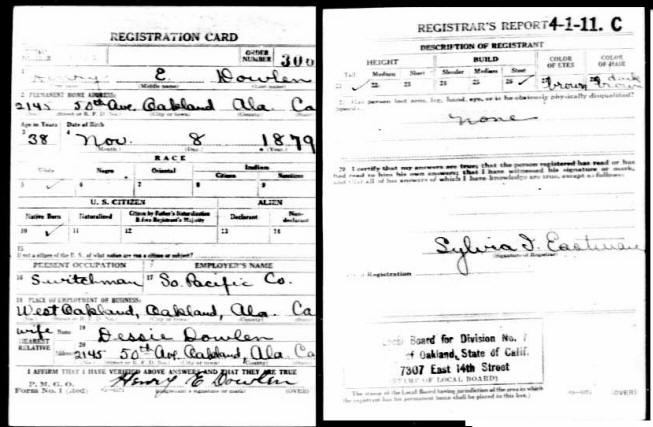 REGISTRATION CARD
ORDER NUMBER 300
Henry E. Dowlen
(Middle name) (Last name)
2 PERMANENT HOME ADDRESS:
2145 50th Ave. Oakland Ala. Ca
Age in Years Date of Birth
38 Nov. 8 1879
(Month) (Day) (Year)
RACE
White Negro Oriental Indian
Citizen Noncitizen
5 ✓ 6 7 8 9
U. S. CITIZEN ALIEN
Native Born Naturalized Citizen by Father's Naturalization Before Registrant's Majority Declarant Non-declarant
10 ✓ 11 12 13 14
15
If not a citizen of the U. S. of what nation are you a citizen or subject?
PRESENT OCCUPATION EMPLOYER'S NAME
16 Switchman 17 So. Pacific Co.
18 PLACE OF EMPLOYMENT OR BUSINESS:
West Oakland, Oakland, Ala. Ca
wife Name 19 Dessie Dowlen
NEAREST RELATIVE Address 20 2145 50th Ave. Oakland, Ala. Ca
I AFFIRM THAT I HAVE VERIFIED ABOVE ANSWERS AND THAT THEY ARE TRUE
P. M. G. O.
Form No. 1 (Red) Henry E Dowlen
(Registrant's signature or mark) (OVER)
REGISTRAR'S REPORT 4-1-11. C
DESCRIPTION OF REGISTRANT
HEIGHT BUILD COLOR OF EYES COLOR OF HAIR
Tall Medium Short Slender Medium Stout
21 22 ✓ 23 24 25 26 ✓ 27 brown 28 dark brown
29 Has person lost arm, leg, hand, eye, or is he obviously physically disqualified?
(Specify.)
none
30 I certify that my answers are true; that the person registered has read or has
had read to him his own answers; that I have witnessed his signature or mark,
and that all of his answers of which I have knowledge are true, except as follows:
Sylvia I. Eastman
(Signature of Registrar)
Registration
Local Board for Division No. 7
of Oakland, State of Calif.
7307 East 14th Street
(STAMP OF LOCAL BOARD)
The stamp of the Local Board having jurisdiction of the area in which
the registrant has his permanent home shall be placed in this box.)
(OVER)